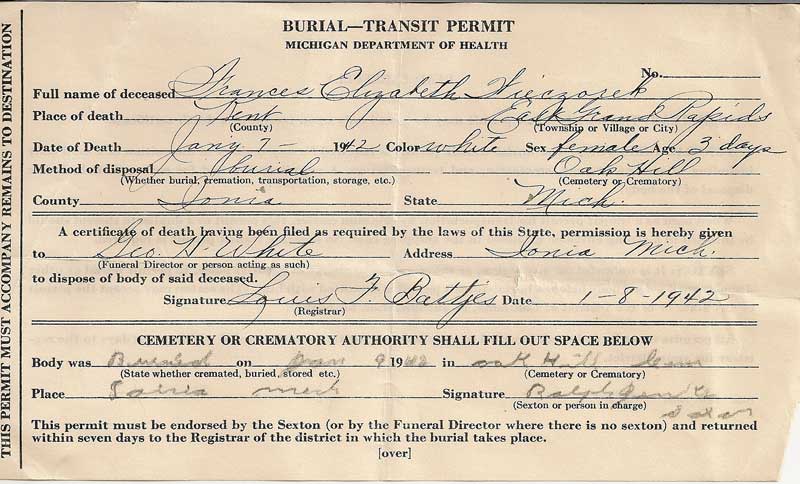 THIS PERMIT MUST ACCOMPANY REMAINS TO DESTINATION
BURIAL—TRANSIT PERMIT
MICHIGAN DEPARTMENT OF HEALTH
No.
Full name of deceased Frances Elizabeth Wieczorek
Place of death Kent East Grand Rapids
(County) (Township or Village or City)
Date of Death Jany 7- 1942 Color white Sex female Age 3 days
Method of disposal burial Oak Hill
(Whether burial, cremation, transportation, storage, etc.) (Cemetery or Crematory)
County Ionia State Mich.
A certificate of death having been filed as required by the laws of this State, permission is hereby given
to Geo. H. White Address Ionia Mich.
(Funeral Director or person acting as such)
to dispose of body of said deceased.
Signature Louis F. Battjes Date 1-8-1942
(Registrar)
CEMETERY OR CREMATORY AUTHORITY SHALL FILL OUT SPACE BELOW
Body was Buried on Jan 9 1942 in oak Hill Cem
(State whether cremated, buried, stored etc.) (Cemetery or Crematory)
Place mech Signature Ralph
(Sexton or person in charge)
This permit must be endorsed by the Sexton (or by the Funeral Director where there is no sexton) and returned
within seven days to the Registrar of the district in which the burial takes place.
[over]